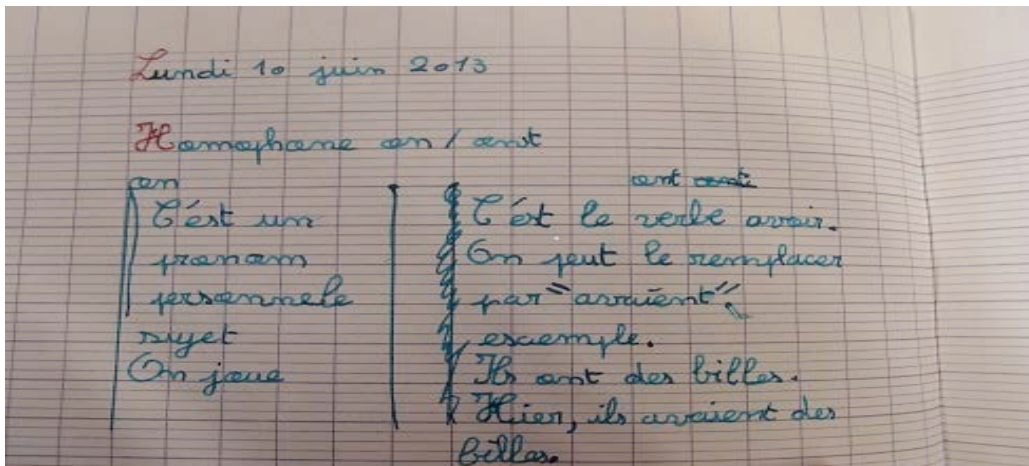 Lundi 10 juin 2013
Homophone on / ont
on
C'est un
pronom
personnele
sujet
On joue
ont
C'est le verbe avoir.
On peut le remplacer
par "avaient"
escemple.
Ils ont des billes.
Hier, ils avaient des
billes.